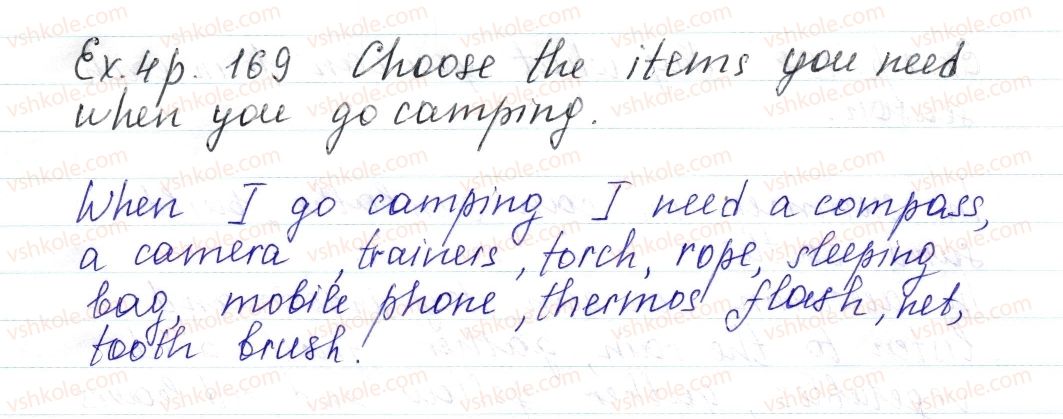 Ex. 4 p. 169 Choose the items you need
when you go camping.
When I go camping I need a compass,
a camera, trainers, torch, rope, sleeping
bag, mobile phone, thermos flash, net,
tooth brush.